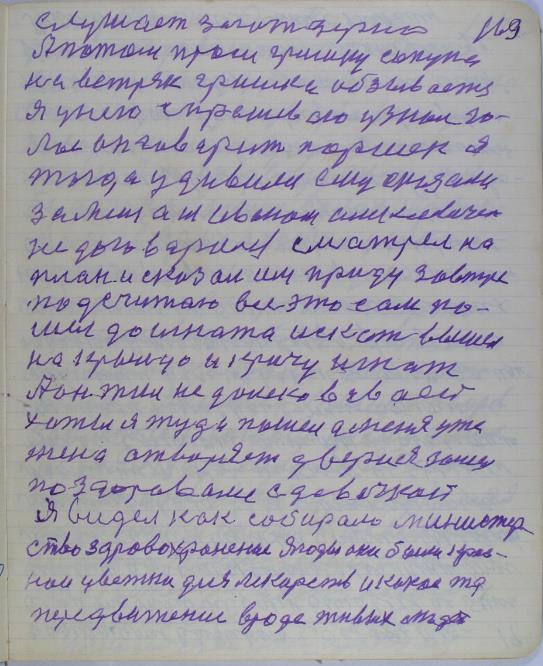 слушает заготзерно 169
А потом проси гришку сапуна
на ветряк гришка обзывается
я у него спрашеваю узнал го-
лос он говарит поршок я
тогда удивили ему сказали
за меш а и иваном
не договарился сматрел на
план и сказал им приду завтра
подсчитаю все это сам по-
шел до игната искат вышел
на крыицо и кричу игнат
А он жил не далеко в его
хотел я туда пошел а меня уже
жена отворяет двери я зашел
поздоровался с дев
Я видел как собирало министер
ство здровохранение ягоды они были крас-
ное цветки для лекарств и какое то
передвежение вроде живых